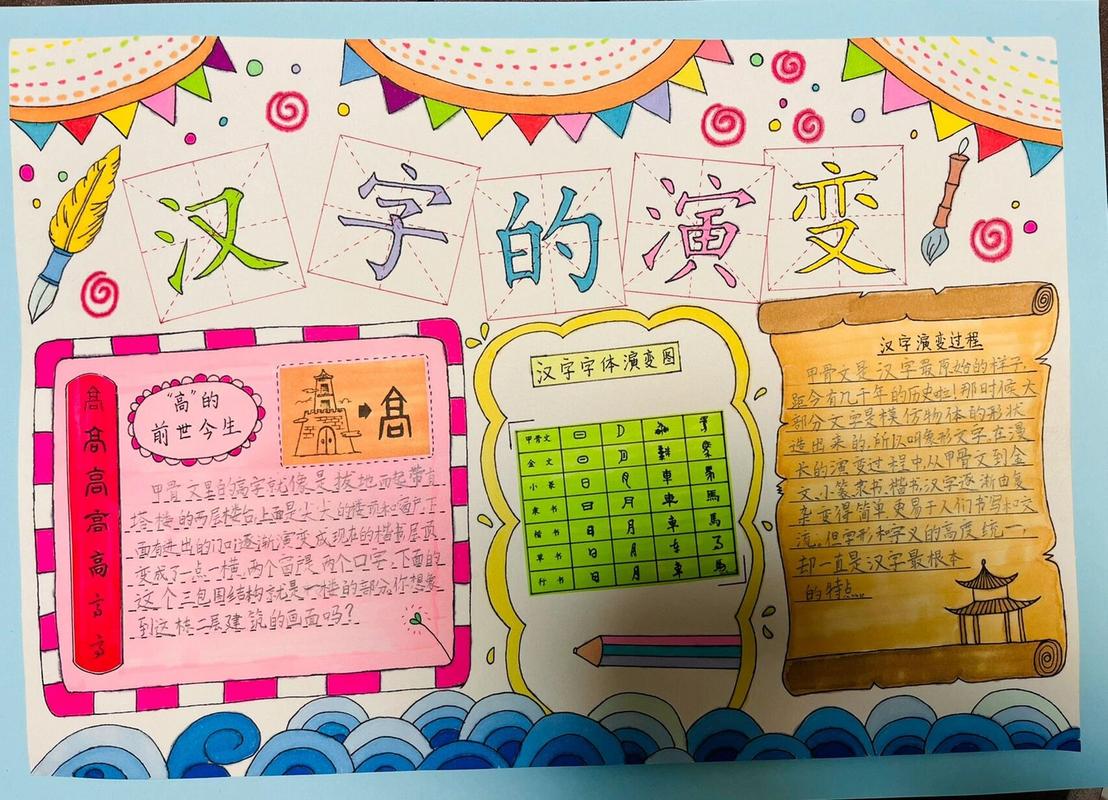 汉字的演变
高
高
高
高
高
"高"的
前世今生
高
甲骨文里的高字就像是拔地而起带有
塔楼的两层楼台,上面是尖尖的楼顶和窗户,下
面有进出的门口,逐渐演变成现在的楷书屋顶
变成了一点一横,两个窗是两个口字,下面的
这个三包围结构就是一楼的部分,你想象
到这栋二层建筑的画面吗?
汉字字体演变图
甲骨文
金文
小篆 日
隶书 日 月 車 馬
楷书 日 月 車 馬
草书 日 月
行书 日 月 車 馬
汉字演变过程
甲骨文是汉字最原始的样子,
距今有几千年的历史啦!那时候大
部分文字是模仿物体的形状
造出来的,所以叫象形文字,在漫
长的演变过程中,从甲骨文到金
文、小篆、隶书、楷书,汉字逐渐由复
杂变得简单,更易于人们书写和交
流。但字形和字义的高度统一,
却一直是汉字最根本
的特点。